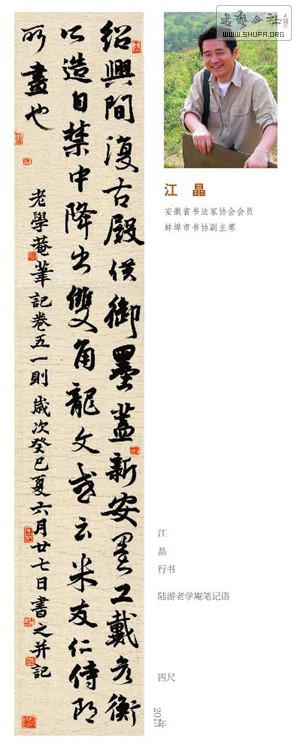 紹興間復古殿供御墨蓋新安墨工戴彥衡
所造自禁中降出雙角龍文或云米友仁侍郎
所畫也
老學菴筆記卷五一則 歲次癸巳夏六月廿七日書之并記
WWW.SHUFA.ORG
江 晶
安徽省书法家协会会员
蚌埠市书协副主席
江
晶
行书
陆游老学庵笔记语
四尺
2013年